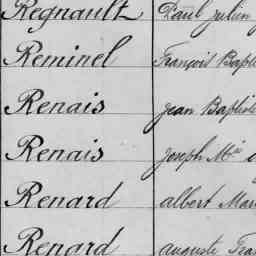 Regnault Paul Julien
Reminel François Bapti
Renais Jean Baptiste
Renais Joseph Mie
Renard albert Mar
Renard auguste Fra